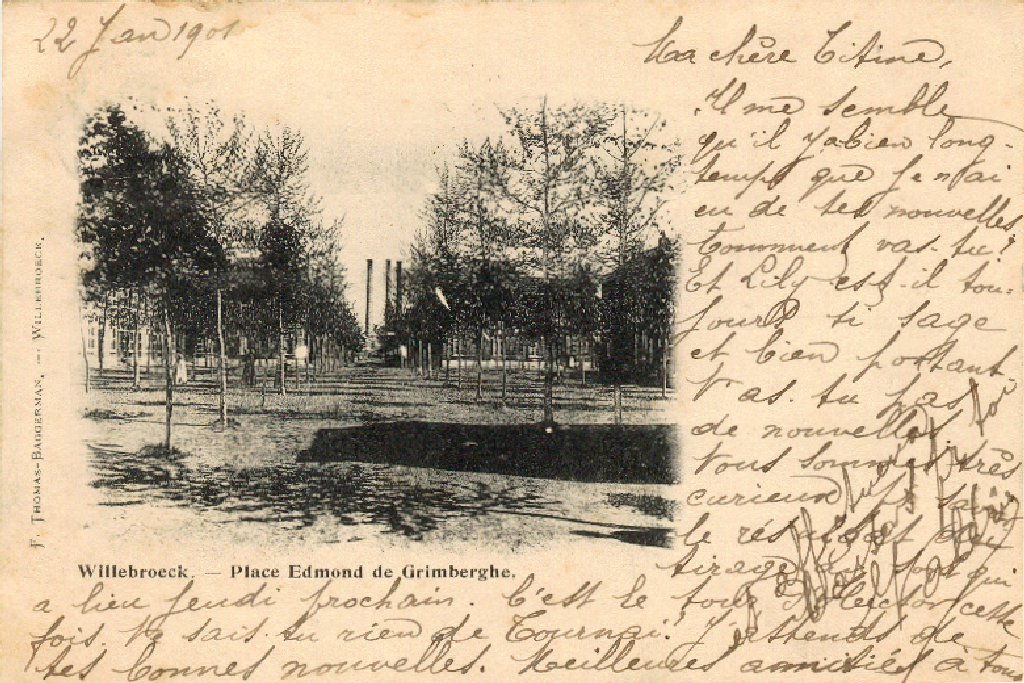 22 Jan 1901
Ma chère Titine,
Il me semble
qu'il y a bien long-
temps que je n'ai
eu de tes nouvelles
Comment vas-tu?
Et Lily est-il tou-
jours si sage
et bien portant,
N'as-tu pas
de nouvelles.
Nous sommes très
curieux de savoir
le résultat du
tirage au sort qui
a lieu jeudi prochain. C'est le tour d'Hector cette
fois. Ne sais-tu rien de Tournai. J'attends de
tes bonnes nouvelles. Meilleures amitiés à tous
F. Thomas-Baggerman, — Willebroeck.
Willebroeck. — Place Edmond de Grimberghe.